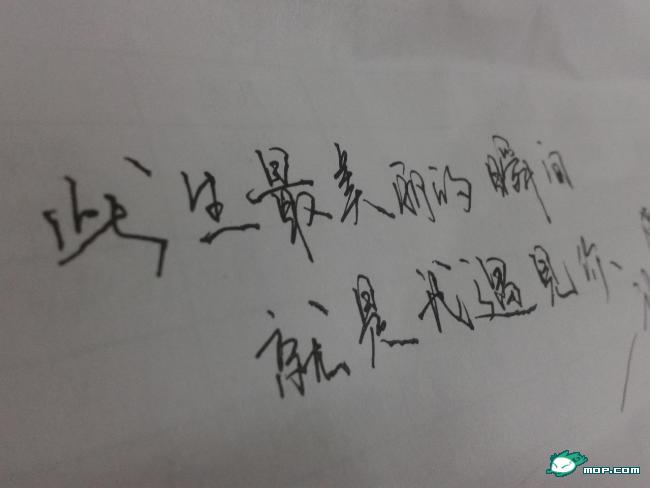 此生最美丽的瞬间
就是我遇見你
MOP.COM